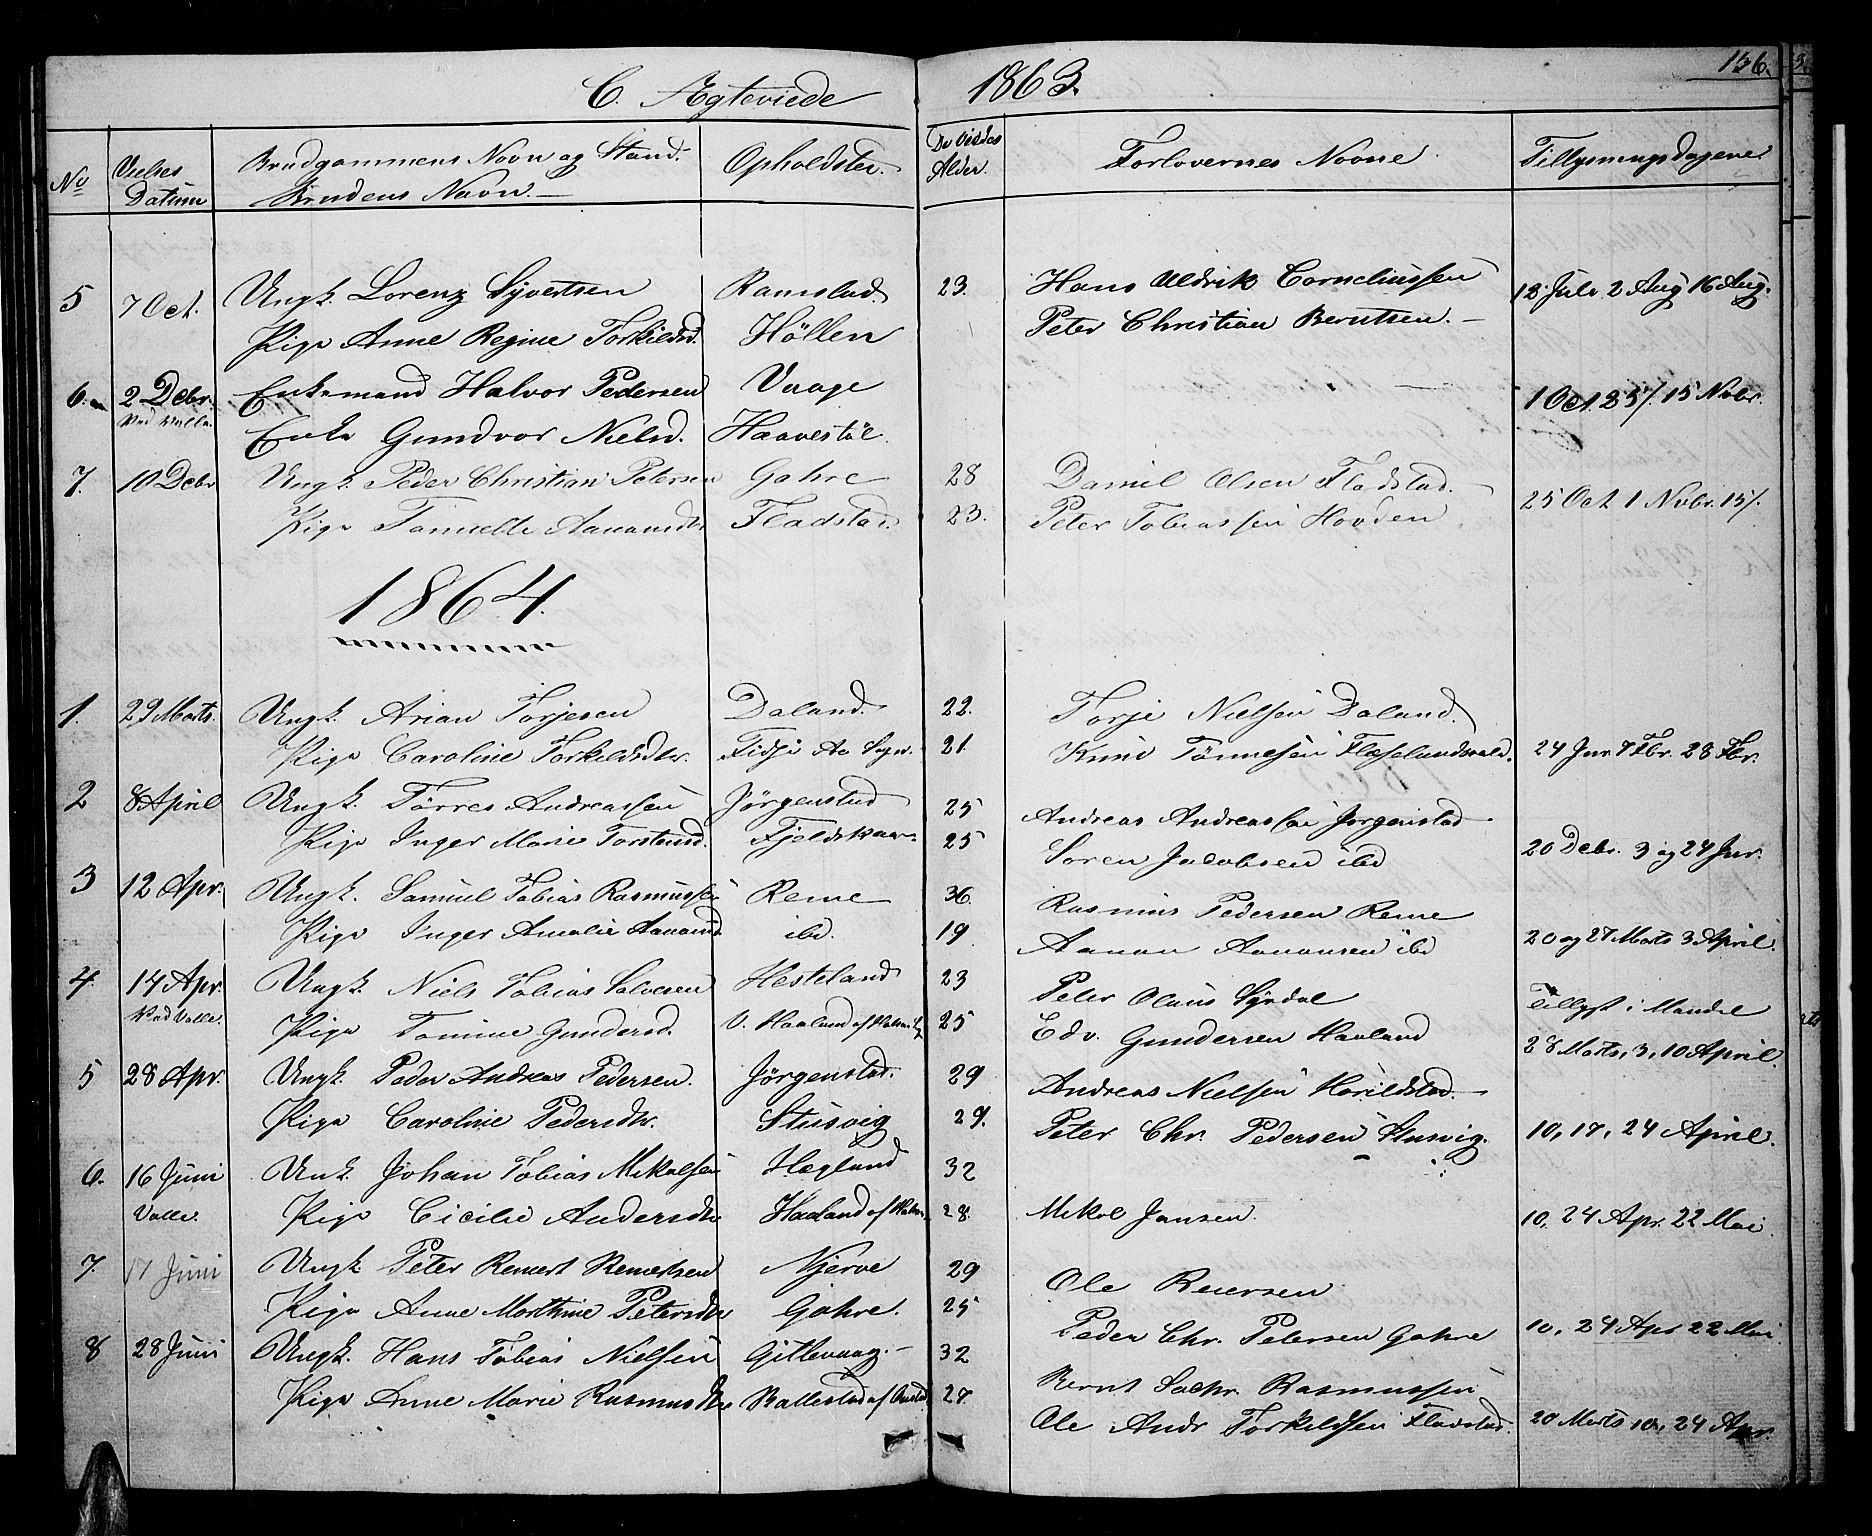 C. Ægteviede 1863. 156.
No Vielses Datum Brudgommens Navn og Stand. Brudens Navn. — Opholdsted. De Viedes Alder. Forlovernes Navne. Tillysningsdagene.
5 7 Oct. Ungk. Lorenz Syvertsen Ramslad 23. Hans Uldrik Corneliussen 12 Juli 2 Aug 16 Aug.
Pige Anne Regine Torkildsd. Höllen Peter Christian Berntsen. —
6. 2 Debr. Enkemand Halvor Pedersen Vaage 1 Oct 25/ 15 Nvbr.
Ved Valle. Enke Gundvor Nielsd. Haavestöl.
7. 10 Debr Ungk. Peder Christian Petersen Gahre 28 Daniel Olsen Fladstad.
Pige Tomette Aanonsdtr Fladstad. 23. Peter Tobiassen Hovden 25 Oct 1 Nvbr. 15/.
1864.
1. 29 Marts. Ungk. Arian Torjesen Daland. 22. Torje Nielsen Daland.
Pige Caroline Torkildsdtr. Fidje Aa Sogn. 21. Knud Tönnesen 24 Jnr. 7 Fbr. 28 Fbr.
2 8 April Ungk. Törres Andreassen Jörgenstad 25 Andreas Andreassen Jörgenstad
Pige Inger Marie Torstensd. Fjeldskaar 25 Sören Jacobsen ibd 20 Debr. 3 og 24 Jnr.
3 12 Apr. Ungk. Samuel Tobias Rasmussen Reme 36. Rasmus Pedersen Reme
Pige Inger Amalie Aanonsd. ibd. 19. Aanon Aanonsen ibd 20 og 27 Marts 3 April.
4. 14 Apr. Ungk. Niels Tobias Salvesen Hesteland 23 Peter Olaus Syrdal Tillyst i Mandal
Ved Valle. Pige Tomine Gundersd. V. Haaland af Halsaa Sg 25 Edv. Gundersen Haaland 28 Marts, 3, 10 April.
5 28 Apr. Ungk. Peder Andreas Pedersen. Jörgenstad. 29 Andreas Nielsen Harildstad. —
Pige Caroline Pedersdtr. Stusvig 29. Peter Chr. Pedersen Stusvig. 10, 17, 24 April.
6. 16 Juni Unk. Johan Tobias Mikalsen Hægland 32
Valle. Pige Cicilie Andersdtr Haaland af Halsaa 28. Mikal Jansen. 10, 24 Apr. 22 Mai
7. 17 Juni Ungk Peter Remert Remertsen Njerve 29 Ole Reiersen
Pige Anne Marthine Petersdtr Gahre. 25 Peder Chr. Petersen Gahre 10, 24 Apr 22 Mai
8 28 Juni Ungk. Hans Tobias Nielsen Gitlevaag. — 32 Bernt Zachr. Rasmussen
Pige Anne Marie Rasmusdtr Ballestad af 27. Ole Andr Torkildsen Fladstad. 20 Marts 10, 24 Apr.